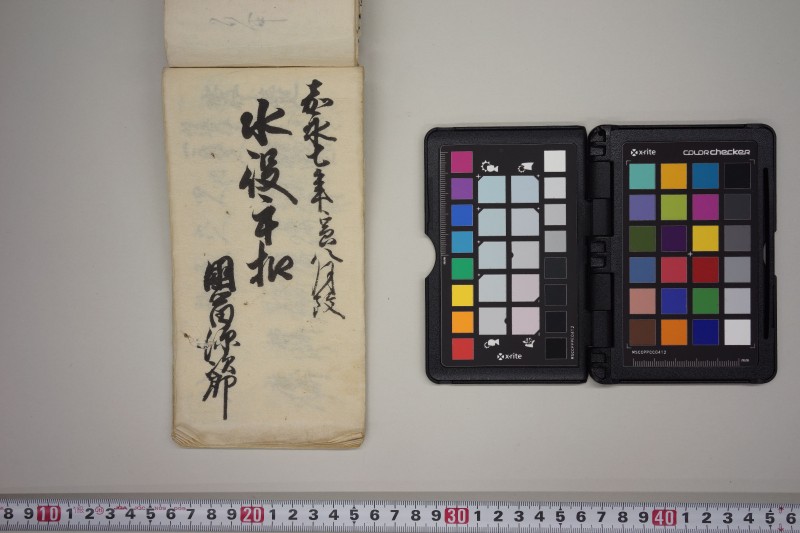 嘉永七年寅八月改
水役手扣
國富源次郎
x-rite
x-rite
COLOR checker
MSCCPPCC0412
MSCCPPCC0412
8 9 10 1 2 3 4 5 6 7 8 9 20 1 2 3 4 5 6 7 8 9 30 1 2 3 4 5 6 7 8 9 40 1 2 3 4 5 6